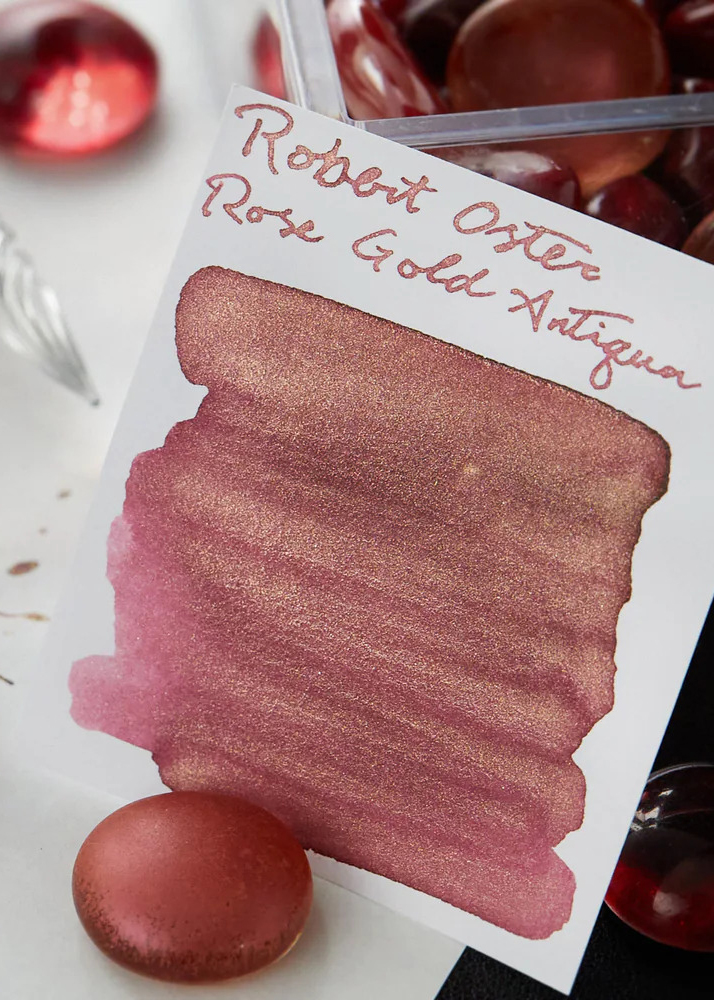 Robert Oster
Rose Gold Antiqua